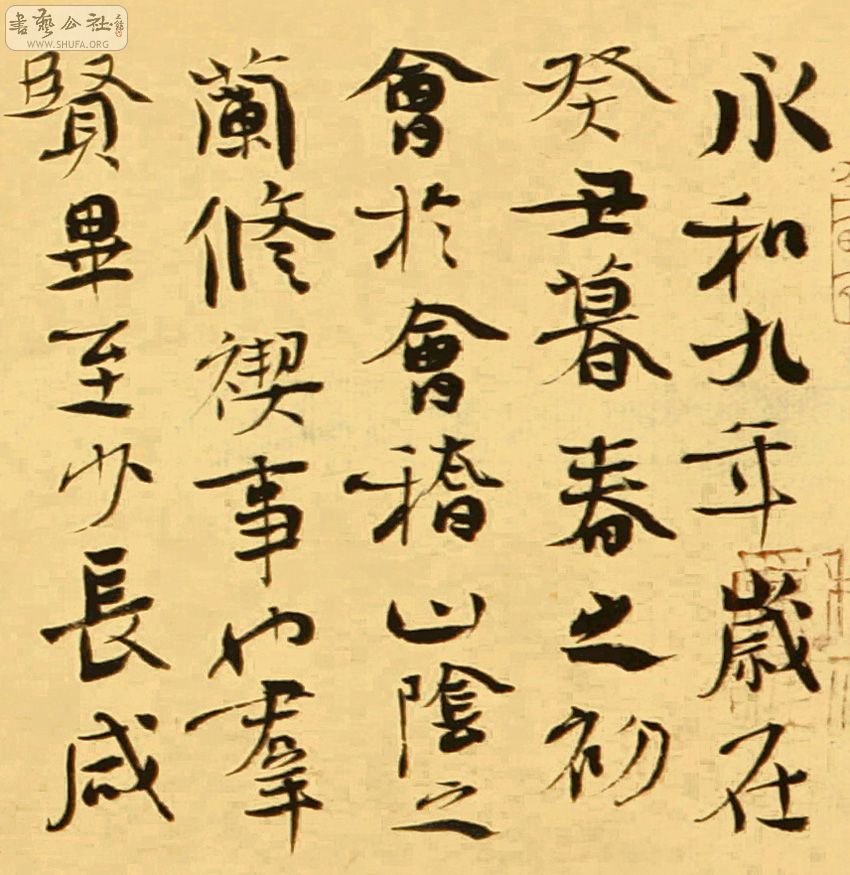 永和九年歲在
癸丑暮春之初
會於會稽山陰之
蘭修禊事也羣
賢畢至少長咸
書藝公社
WWW.SHUFA.ORG